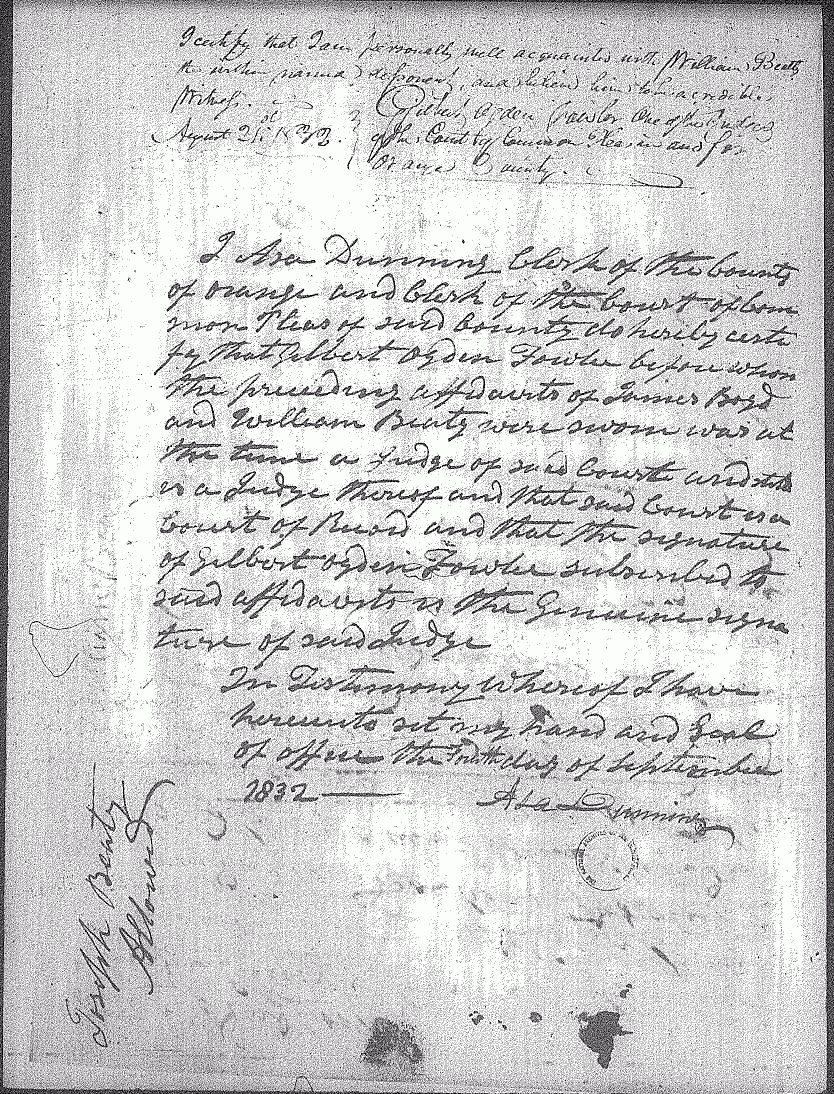 I certify that I am personally well acquainted with William Beaty
the within named deponent, and believe him to be a credible
Witness.
August 21st 1832.
Gilbert Ogden Fowler One of the Judges
of the Court of Common Pleas in and for
Orange County.
I Asa Dunning Clerk of the County
of orange and Clerk of the Court of Com
mon Pleas of said County do hereby certi
fy that Gilbert Ogden Fowler before whom
the preceeding affidavits of James Boyd
and William Beaty were sworn was at
the time a Judge of said Court and still
is a Judge thereof and that said Court is a
Court of Record and that the signature
of Gilbert Ogden Fowler subscribed to
said affidavits is the Genuine signa
ture of said Judge
In Testimony Whereof I have
hereunto set my hand and Seal
of office the day of September
1832
Asa Dunning
Joseph Beaty
Allowed